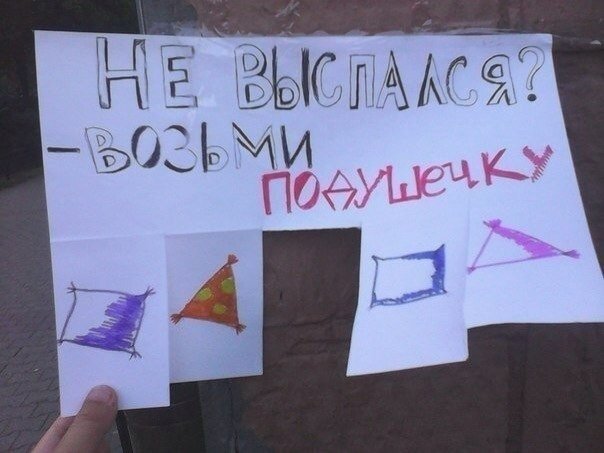 НЕ ВЫСПАЛСЯ?
-ВОЗЬМИ
ПОДУШЕЧКУ